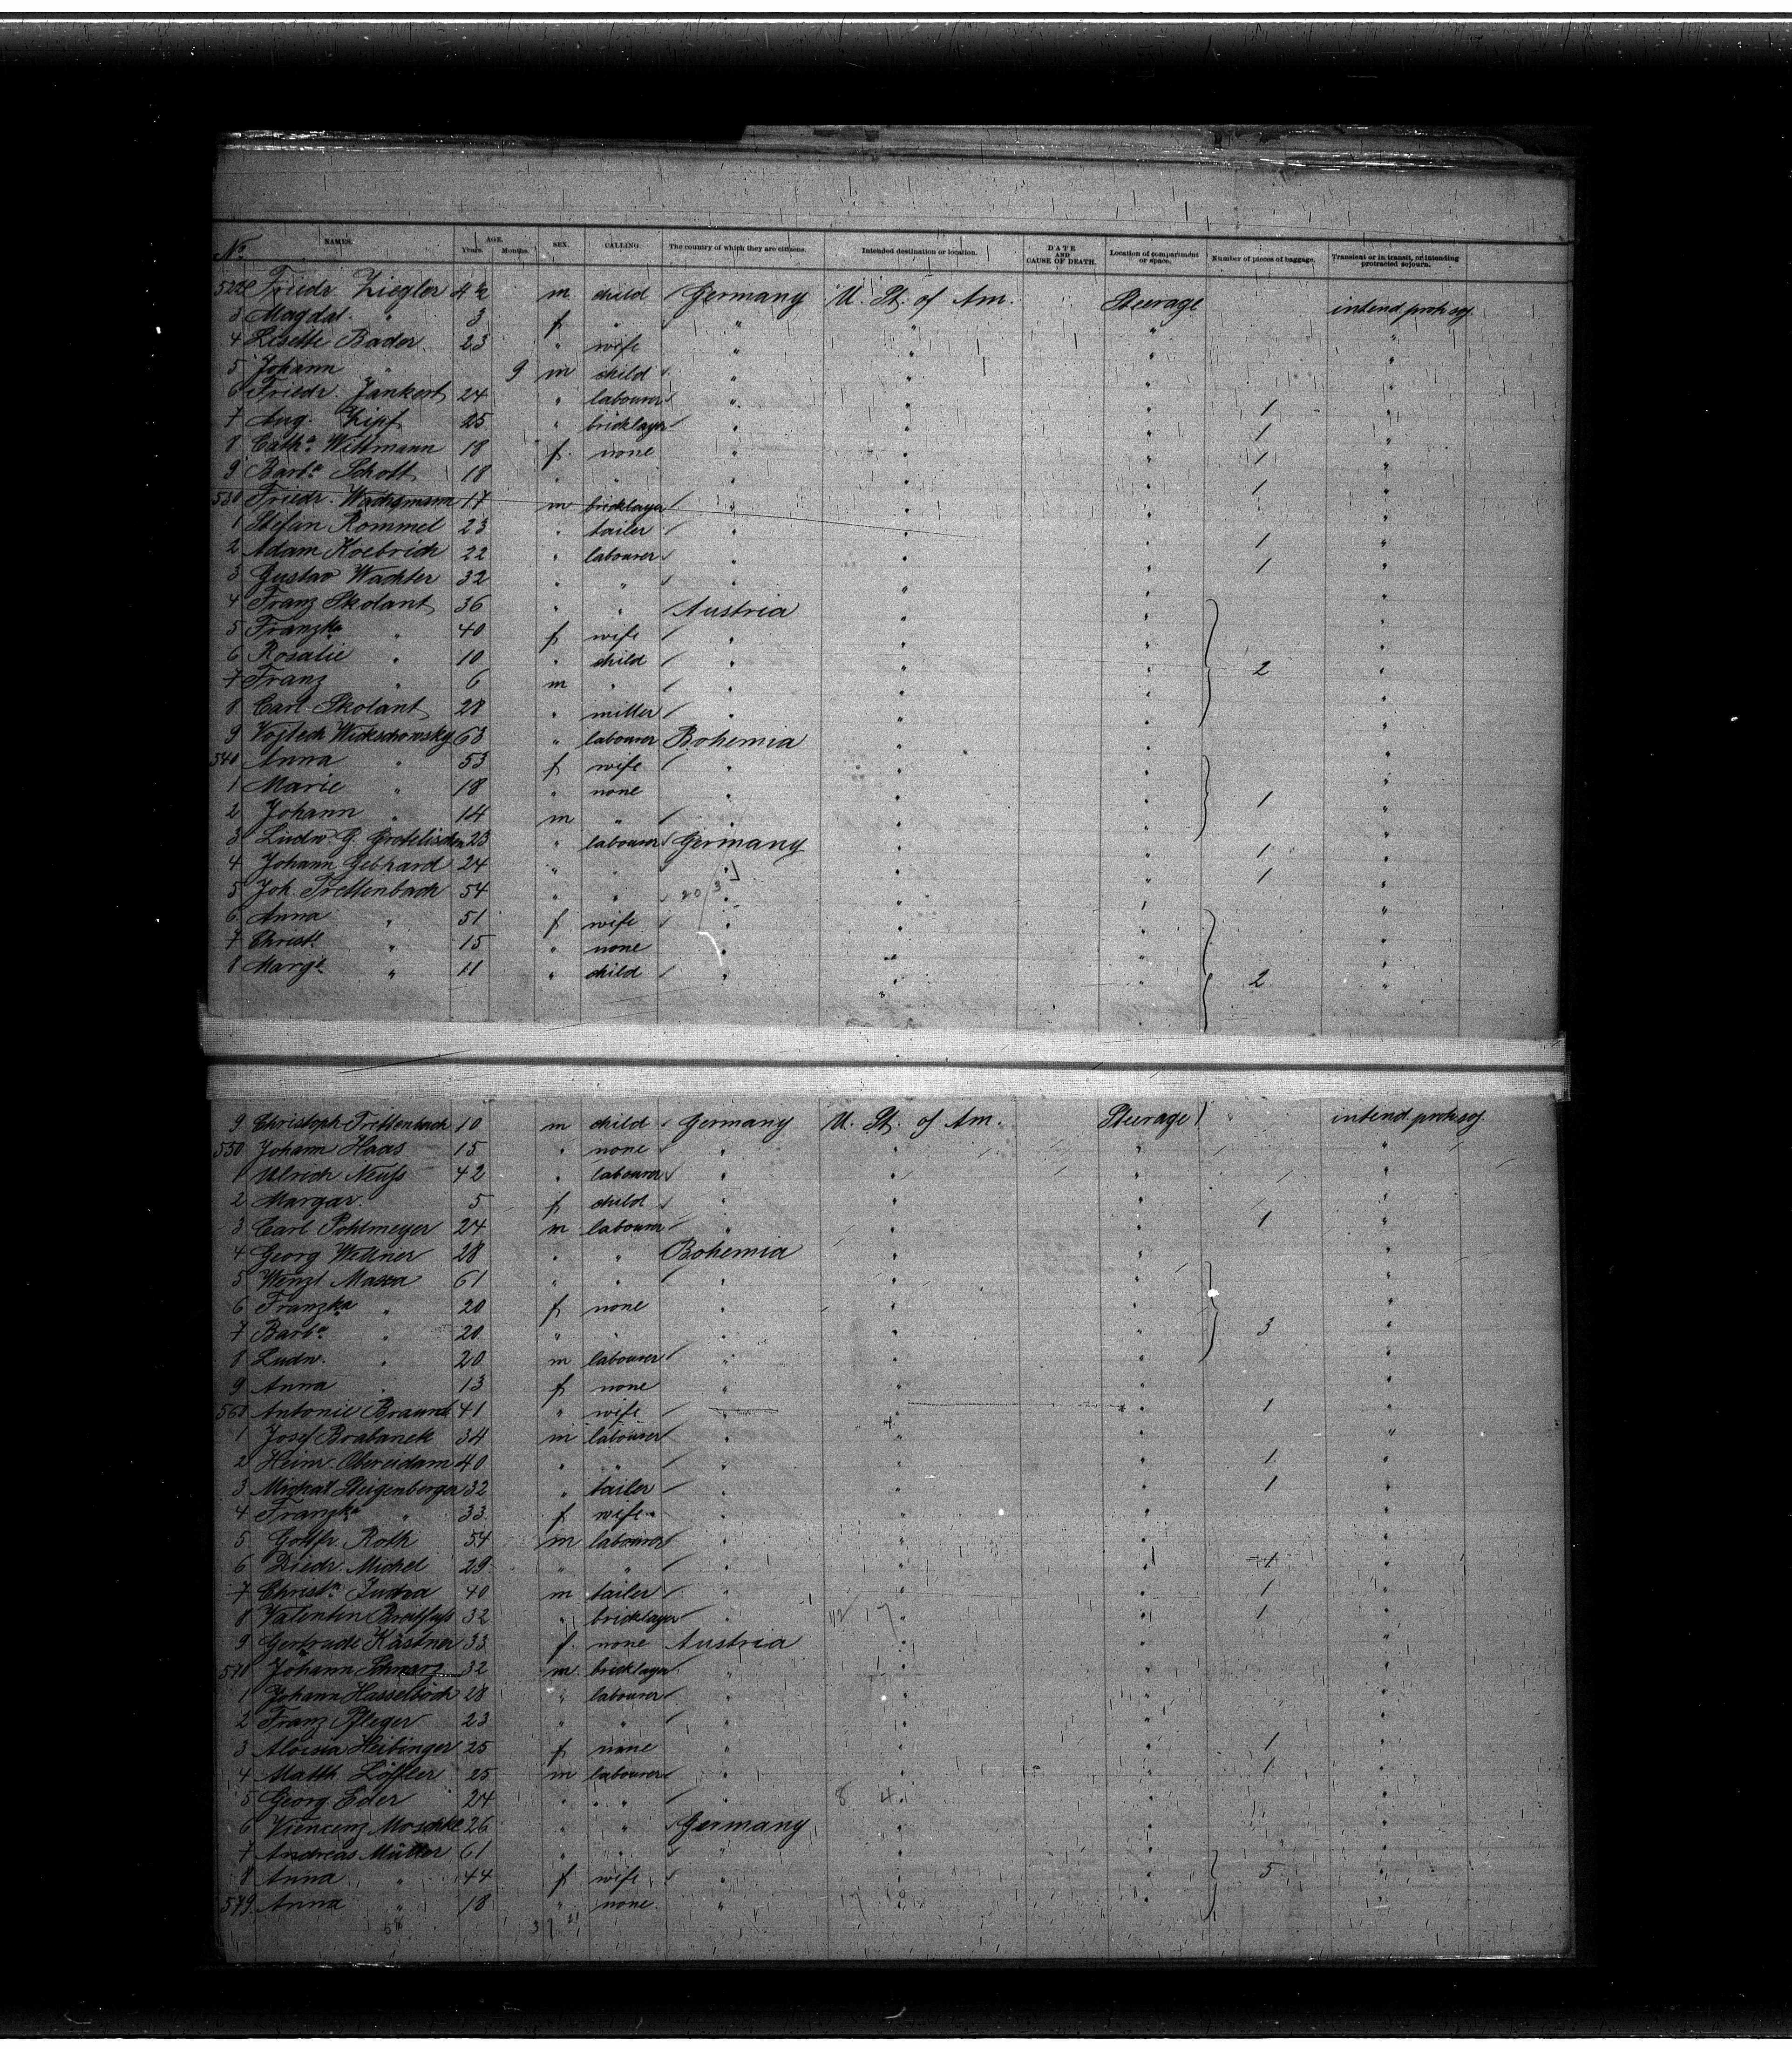 No. NAMES. AGE. Years. Months. SEX. CALLING. The country of which they are citizens. Intended destination or location. DATE AND CAUSE OF DEATH. Location of compartment or space. Number of pieces of baggage. Transient or in transit, or intending protracted sojourn.
Friedr. Ziegler 4½ m child Germany U. St. of Am. Steerage intend. protr. soj.
3 Magdal. " 3 f " " " " "
4 Lisette Bader 23 " wife " " " "
5 Johann " 9 m child " " " "
6 Friedr. Jankert 24 " labourer " " " 1 "
7 Aug. Zipf 25 " bricklayer " " " 1 "
8 Cathe. Wittmann 18 f none " " " 1 "
9 Barba. Schott 18 " " " " " 1 "
530 Friedr. Wachsmann 17 m bricklayer " " " "
1 Stefan Rommel 23 " tailer " " " 1 "
2 Adam Koebrich 22 " labourer " " " 1 "
3 Gustav Wachter 32 " " " " " "
4 Franz Skolant 36 " " Austria " " "
5 Franzka " 40 f wife " " " "
6 Rosalie " 10 " child " " " 2 "
7 Franz " 6 m " " " " "
8 Carl Skolant 28 " miller " " " "
9 Vojtech Wickschowsky 63 " labourer Bohemia " " "
540 Anna " 53 f wife " " " "
1 Marie " 18 " none " " " 1 "
2 Johann " 14 m " " " " "
3 Ludw. G. Grotelischen 23 " labourer Germany " " 1 "
4 Johann Gebhard 24 " " " " " 1 "
5 Joh. Trettenbach 54 " " 20/3 " " " "
6 Anna " 51 f wife " " " "
7 Christe. " 15 " none " " " "
8 Margt. " 11 " child " " " 2 "
9 Christoph Trettenbach 10 m child Germany U. St. of Am. Steerage intend. protr. soj.
550 Johann Haas 15 " none " " " "
1 Ulrich Neuss 42 " labourer " " " "
2 Margar. 5 f child " " " "
3 Carl Pohlmeyer 24 m labourer " " " 1 "
4 Georg Wellner 28 " " Bohemia " " "
5 Wenzl Massa 61 " " " " " "
6 Franzka " 20 f none " " " "
7 Barba. " 20 " " " " " 3 "
8 Ludw. " 20 m labourer " " " "
9 Anna " 13 f none " " " "
560 Antonie 41 " wife " " " 1 "
1 Josef Brabanek 34 m labourer " " " "
2 Heinr. Obereidam 40 " " " " " 1 "
3 Michael Steigenberger 32 " tailer " " " 1 "
4 Franzka " 33 f wife " " " "
5 Gottfr. Roth 54 m labourer " " " "
6 Diedr. Michel 29 " " " " " 1 "
7 Christn. Judra 40 m tailer " " " 1 "
8 Valentin Breitfuss 32 " bricklayer " " " 1 "
9 Gertrude Kästner 33 f none Austria " " "
570 Johann Schwarz 32 m bricklayer " " " "
1 Johann Hasselböck 28 " labourer " " " "
2 Franz Pfleger 23 " " " " " "
3 Aloisia Heibinger 25 f none " " " 1 "
4 Matth. Löffler 25 m labourer " " " 1 "
5 Georg Eder 24 " " " 8 4 " " "
6 Viencenz Moschke 26 " " Germany " " "
7 Andreas Müller 61 " " " " " "
8 Anna " 44 f wife " " " 5 "
579 Anna " 18 " none " " " "
58 37 21